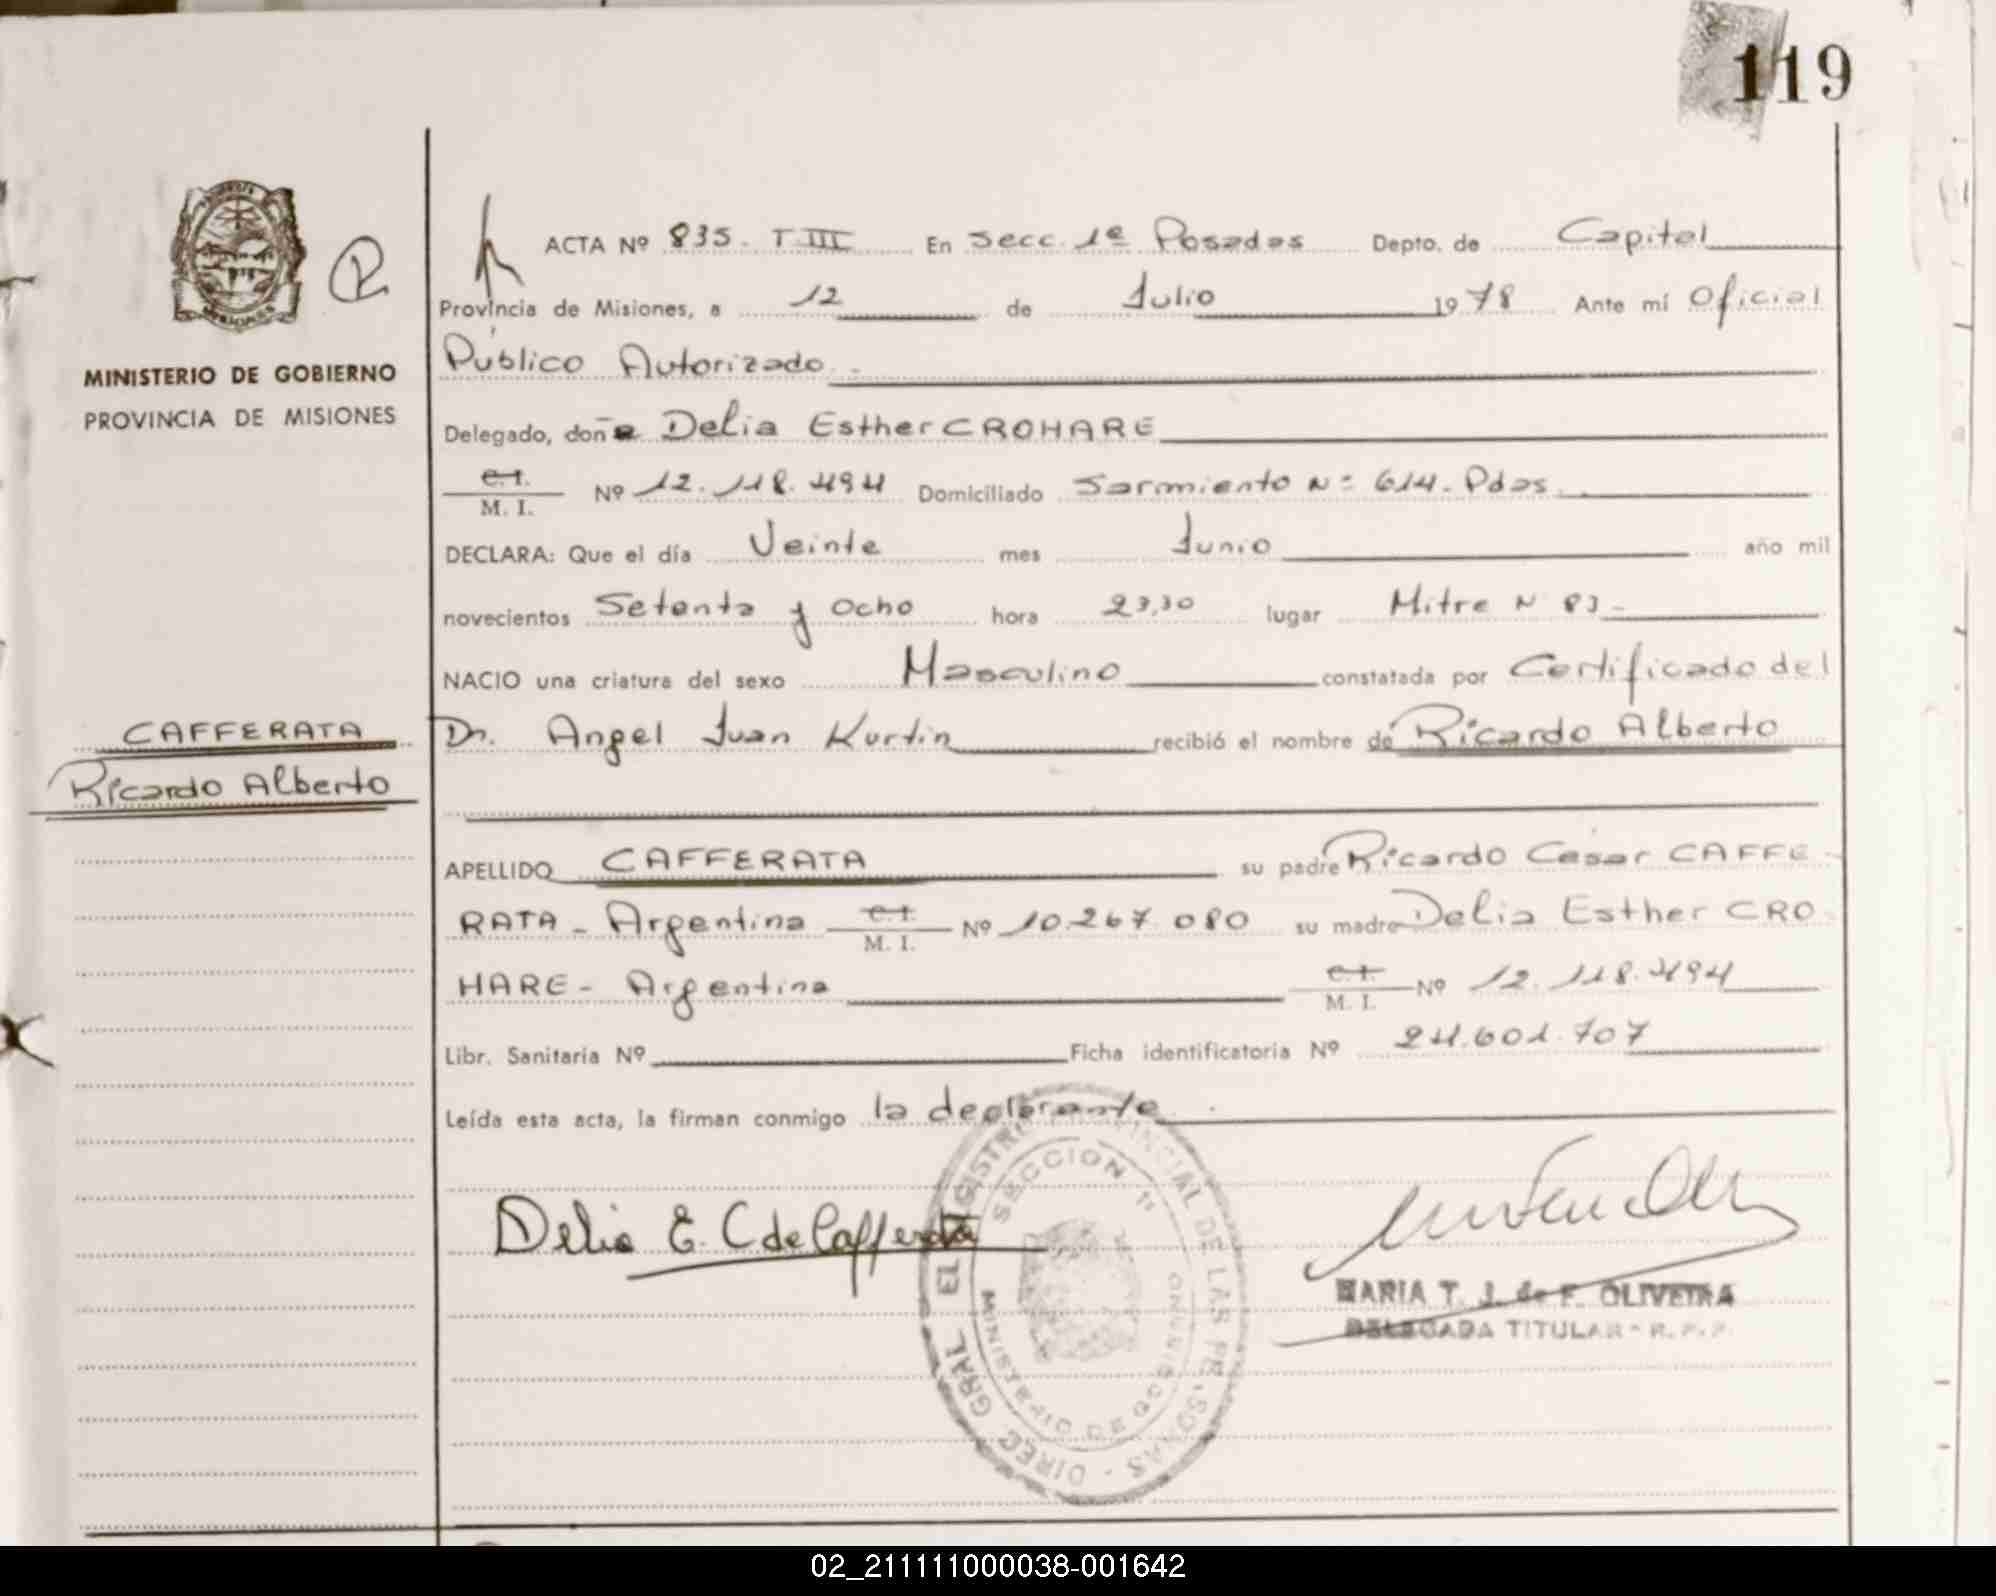 119
MINISTERIO DE GOBIERNO
PROVINCIA DE MISIONES
CAFFERATA
Ricardo Alberto
ACTA Nº 835. T III En Secc. 1ª Posadas Depto. de Capital
Provincia de Misiones, a 12 de Julio 1978 Ante mí Oficial
Público Autorizado.
Delegado, doña Delia Esther CROHARE
C.I. M. I. Nº 12.118.494 Domiciliado Sarmiento Nº 614. Pdas.
DECLARA: Que el día Veinte mes Junio año mil
novecientos Setenta y Ocho hora 23,30 lugar Mitre N 83
NACIO una criatura del sexo Masculino constatada por Certificado del
Dr. Angel Juan Kurtin recibió el nombre de Ricardo Alberto
APELLIDO CAFFERATA su padre Ricardo César CAFFE-
RATA - Argentina C.I. M. I. Nº 10.267.080 su madre Delia Esther CRO-
HARE - Argentina C.I. M. I. Nº 12.118.494
Libr. Sanitaria Nº Ficha identificatoria Nº 24.601.707
Leída esta acta, la firman conmigo la declarante.
Delia E. C de Cafferata
MARIA T. J. de F. OLIVEIRA
DELEGADA TITULAR - R. P. P.
DIREC. GRAL. EL REGISTRO PROVINCIAL DE LAS PERSONAS
SECCION 1ª
MINISTERIO DE GOBIERNO
02_211111000038-001642